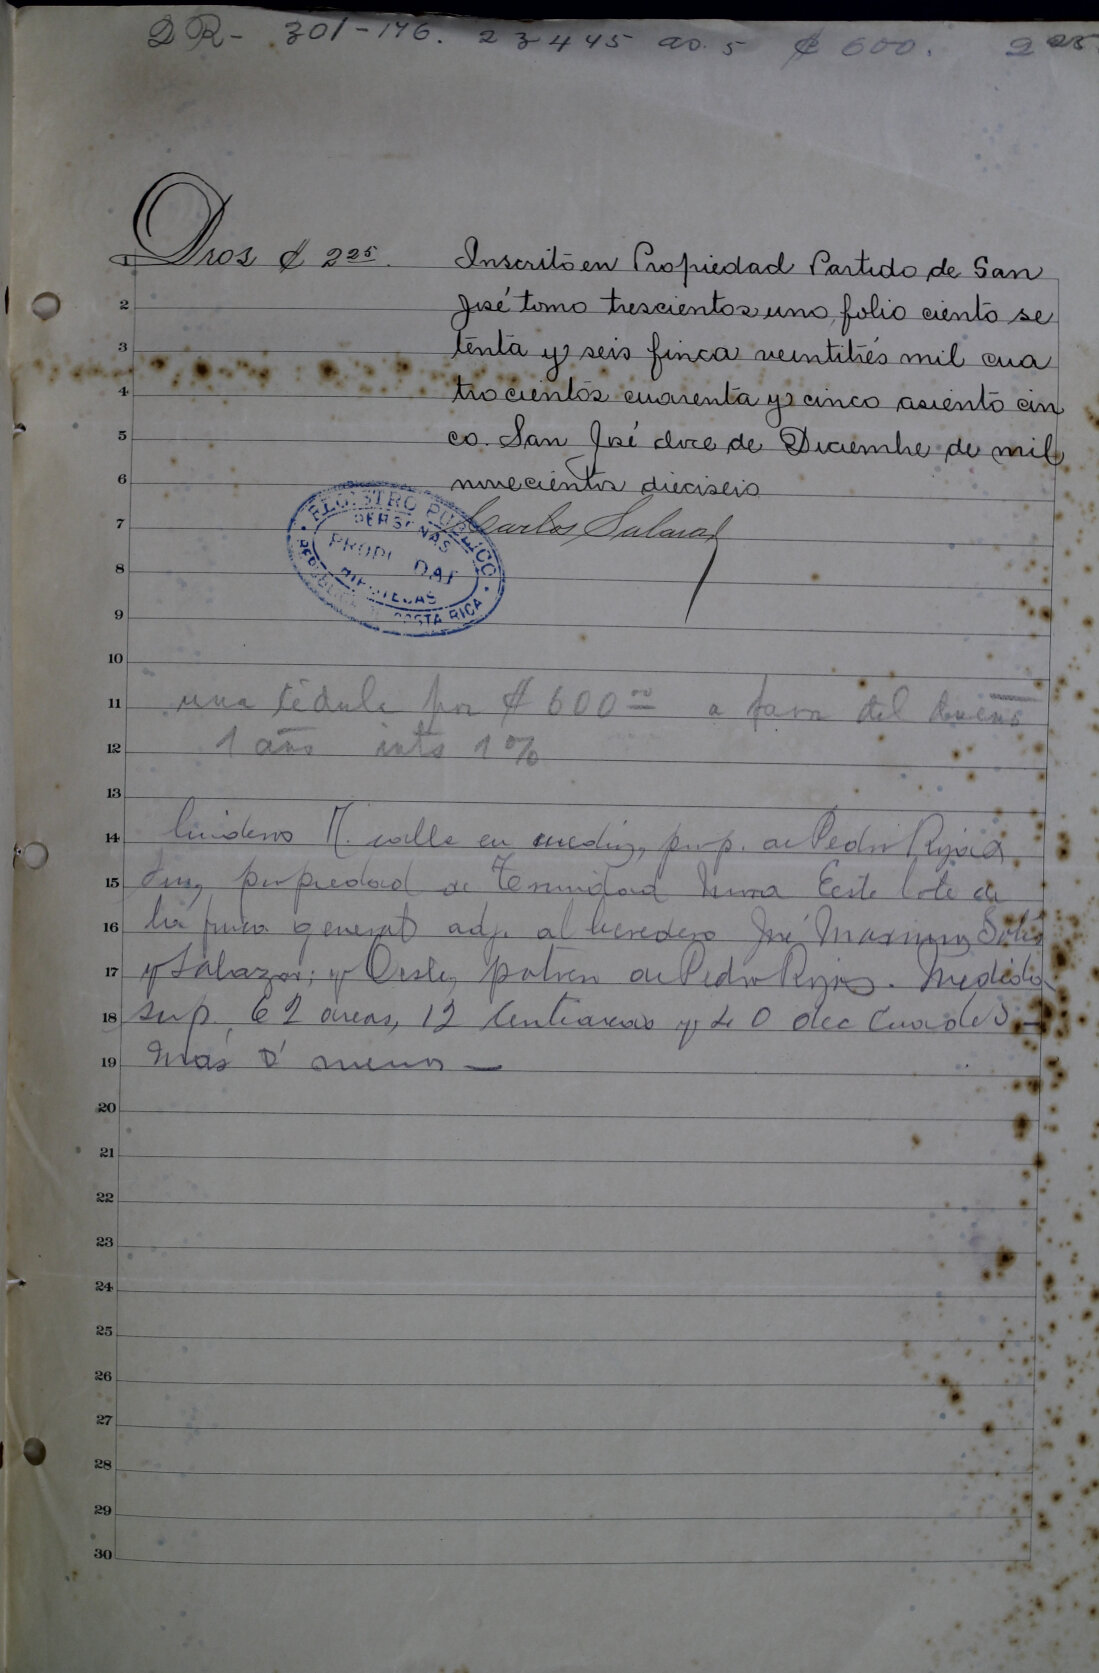 DR- 301-176. 23445 as. 5 ₡ 600. 2 25
Dros ₡ 2 25. Inscrito en Propiedad Partido de San
José tomo trescientos uno, folio ciento se
tenta y seis finca veintitrés mil cua
trocientos cuarenta y cinco asiento cin
co. San José doce de Diciembre de mil
novecientos dieciseis
Carlos Salazar
REGISTRO PUBLICO
PERSONAS
PROPIEDAD
HIPOTECAS
REPUBLICA DE COSTA RICA
una cédula por ₡ 600 00 a favor del dueño
1 año ints 1%
linderos N. calle en medio, prop. de Pedro Rojas
Sur, propiedad de Trinidad Mora Este lote de
la finca general adj. al heredero José Maximo Solis
y Salazar; y Oeste, potrero de Pedro Rojas. Medida
sup. 62 areas, 12 Centiareas y 40 dec Cuad s
más o menos
1
2
3
4
5
6
7
8
9
10
11
12
13
14
15
16
17
18
19
20
21
22
23
24
25
26
27
28
29
30